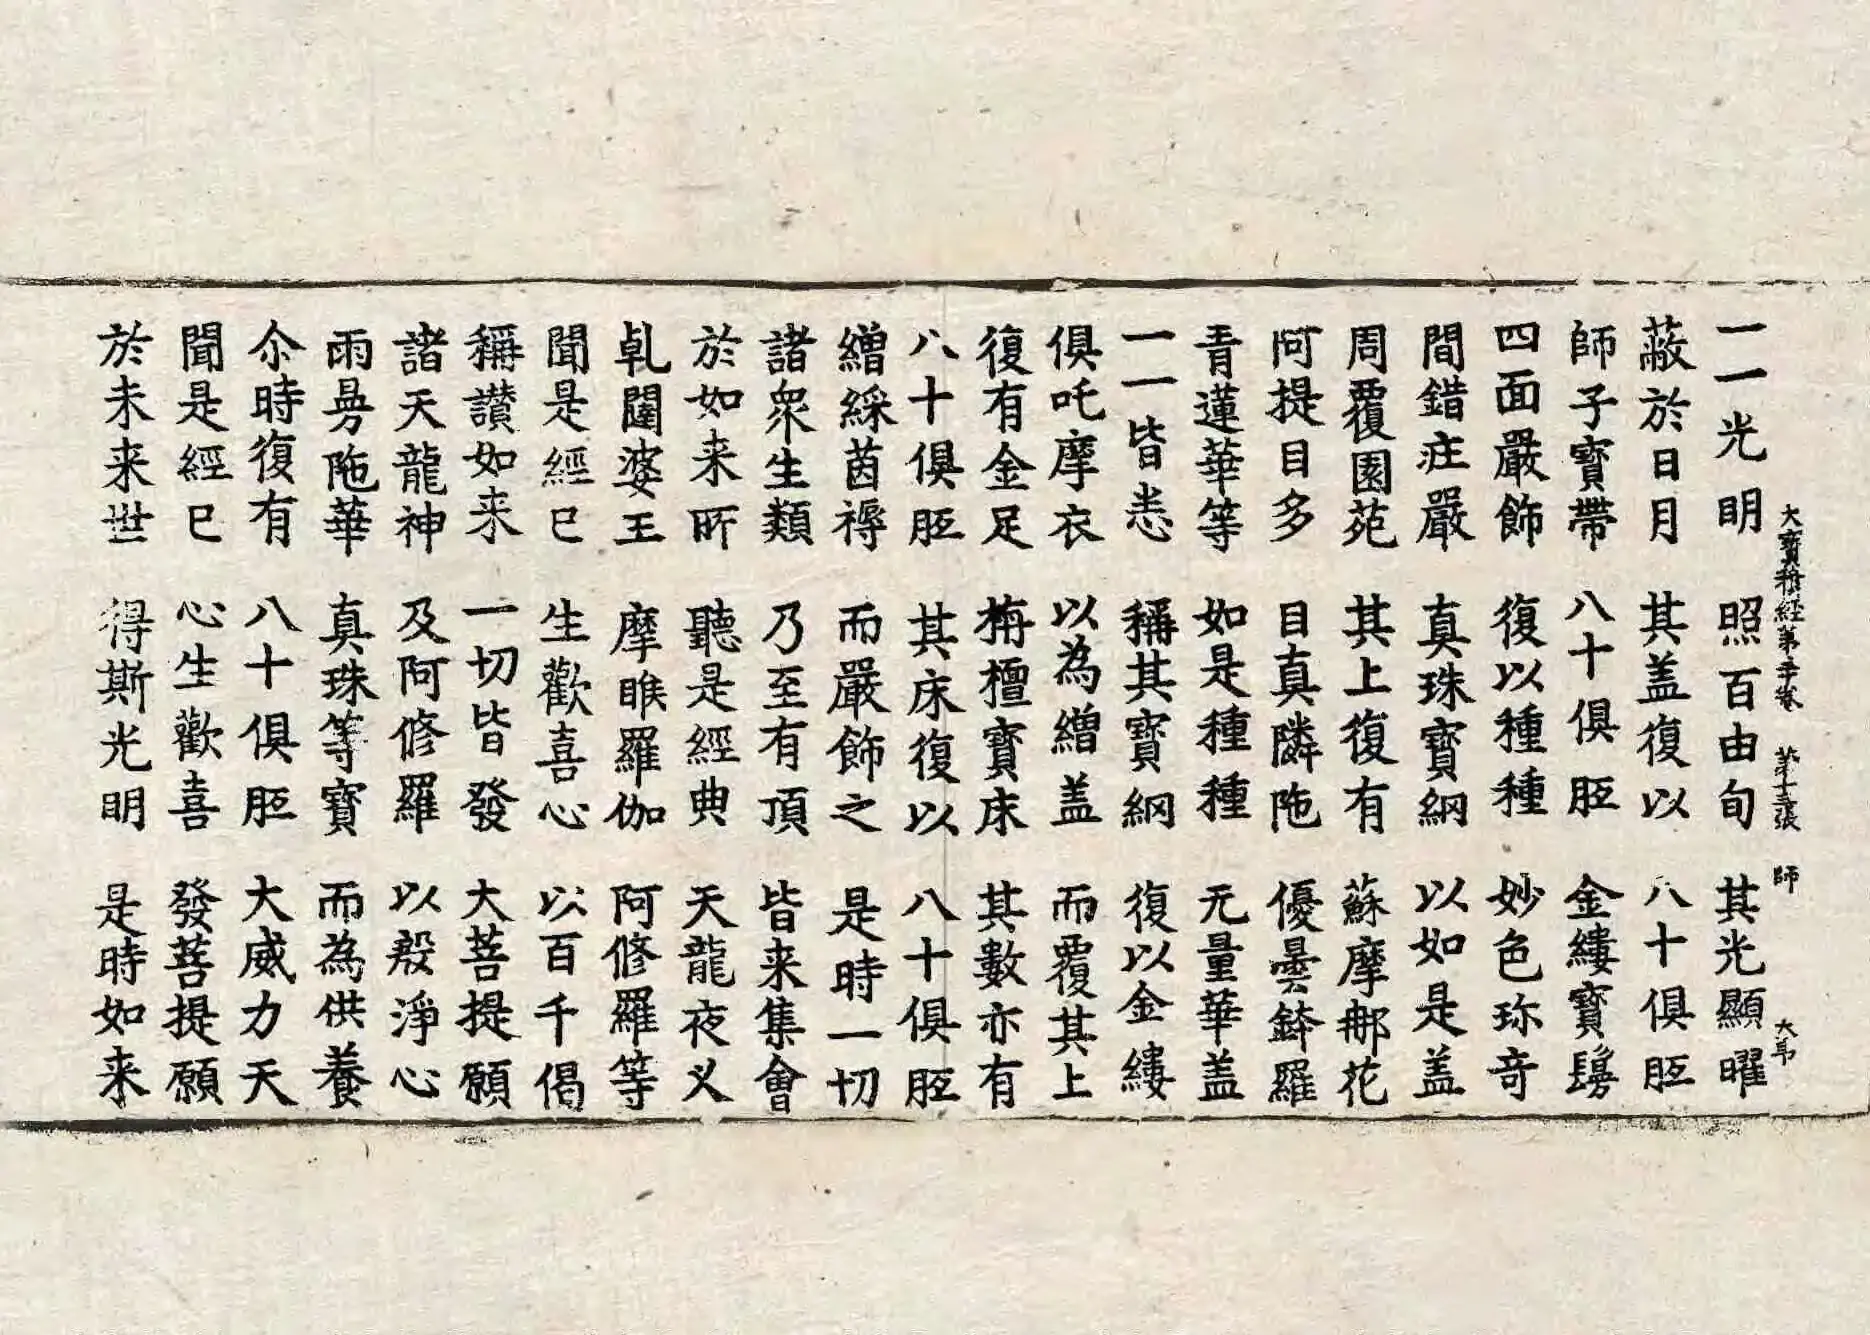 大寶積經第卷 第十三張 師 大
一一光明 照百由旬 其光顯曜
蔽於日月 其盖復以 八十俱胝
師子寶帶 八十俱胝 金縷寶髣
四面嚴飾 復以種種 妙色珎奇
間錯莊嚴 真珠寶網 以如是盖
周覆園苑 其上復有 蘇摩那花
阿提目多 目真隣陁 優曇鉢羅
青蓮華等 如是種種 无量華盖
一一皆悉 稱其寶網 復以金縷
俱吒摩衣 以為繒盖 而覆其上
復有金足 栴檀寶床 其數亦有
八十俱胝 其床復以 八十俱胝
繒綵茵褥 而嚴飾之 是時一切
諸衆生類 乃至有頂 皆来集會
於如来所 聽是經典 天龍夜叉
乹闥婆王 摩睺羅伽 阿修羅等
聞是經已 生歡喜心 以百千偈
稱讃如来 一切皆發 大菩提願
諸天龍神 及阿修羅 以殷淨心
雨曼陁華 真珠等寶 而為供養
尒時復有 八十俱胝 大威力天
聞是經已 心生歡喜 發菩提願
於未来世 得斯光明 是時如来